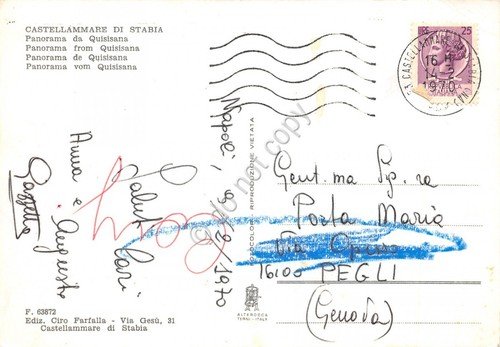 CASTELLAMMARE DI STABIA
Panorama da Quisisana
Panorama from Quisisana
Panorama de Quisisana
Panorama vom Quisisana
25
CASTELLAMMARE
16
14-2
1970
Napoli, 9/2/1970
Saluti Cari
Anna e Augusto
Gazzetta
RIPRODUZIONE VIETATA
do not copy
Gent.ma Sig.ra
Porta Maria
Via
16100 PEGLI
(Genova)
F. 63872
Ediz. Ciro Farfalla - Via Gesù, 31
Castellammare di Stabia
ALTEROCCA
TERNI - ITALY